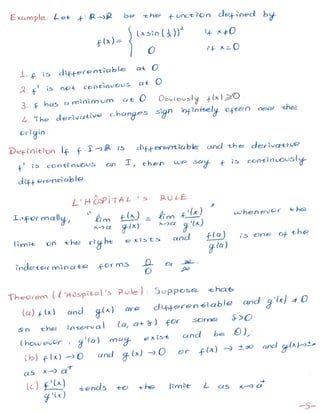 Example: Let f: R→R be the function defined by
f(x) = { (x sin(1/x))² if x≠0
0 if x=0
1. f is differentiable at 0.
2. f' is not continuous at 0
3. f has a minimum at 0. Obviously f(x)≥0
4. The derivative changes sign infinitely often near the
origin.
Definition If f: I→R is differentiable and the derivative
f' is continuous on I, then we say f is continuously
differentiable.
L'HÔSPİTAL'S RULE
Informally, "lim x→a f(x)/g(x) = lim x→a f'(x)/g'(x)" whenever the
limit on the right exists and f(a)/g(a) is one of the
indeterminate forms 0/0 or ∞/∞.
Theorem (l'Hôspital's Rule): Suppose that
(a) f(x) and g(x) are differentiable and g'(x) ≠ 0
on the interval (a, a+δ) for some δ>0
(however, g'(a) may exist and be 0),
(b) f(x)→0 and g(x)→0 or f(x)→±∞ and g(x)→±∞
as x→a⁺
(c) f'(x)/g'(x) tends to the limit L as x→a⁺
-5-